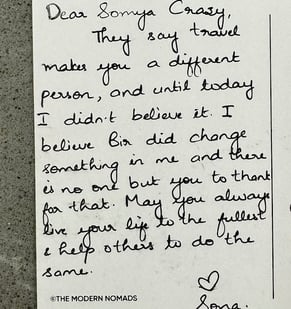 Dear Somya Crazy,
They say travel
makes you a different
person, and until today
I didn't believe it. I
believe Bir did change
something in me and there
is no one but you to thank
for that. May you always
live your life to the fullest
& help others to do the
same.
♡
©THE MODERN NOMADS
Sona.